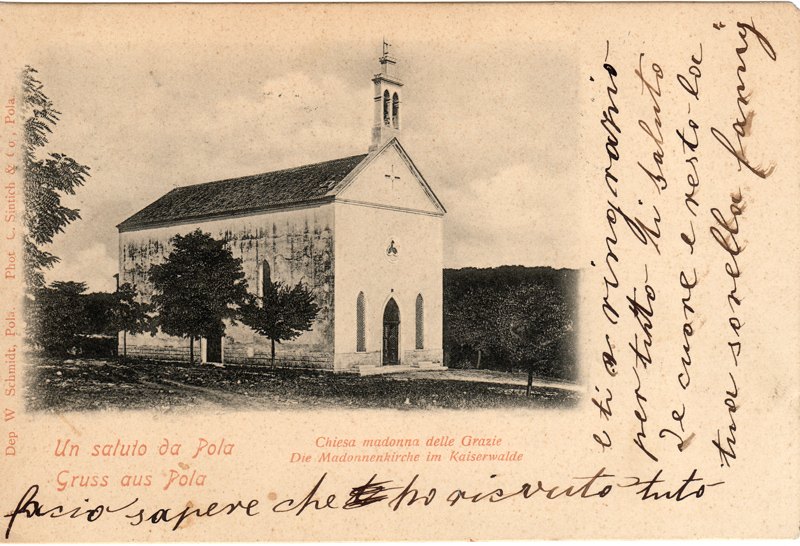 Dep W Schmidt, Pola. Phot C. Sintich & Co, Pola
Un saluto da Pola
Gruss aus Pola
Chiesa madonna delle Grazie
Die Madonnenkirche im Kaiserwalde
facio sapere che ho risvuto tuto
e ti ringrazio
per tutto ti saluto
de cuore e resto la
tua sorella fanny